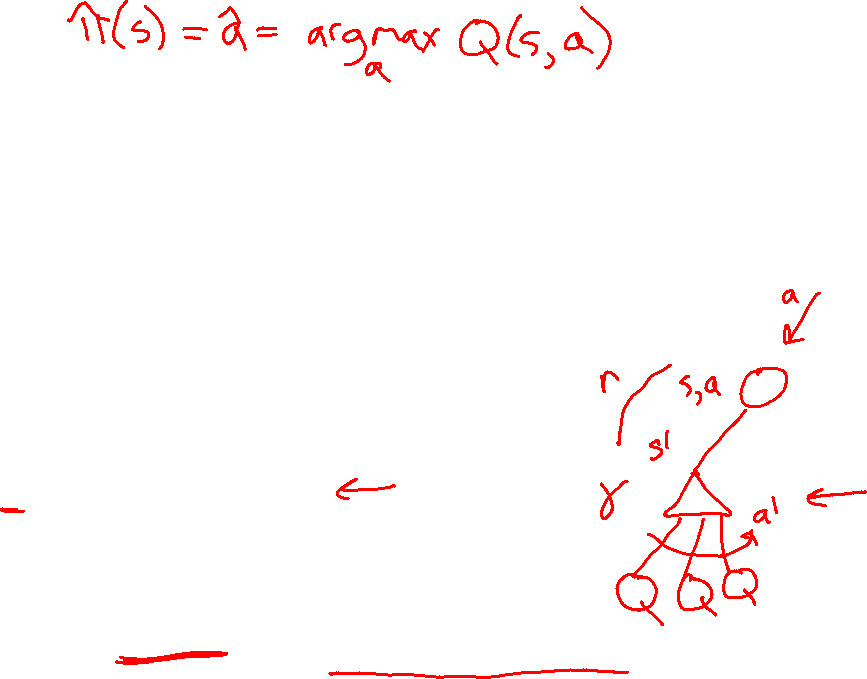 π(s) = â = argmax Q(s,a)
a
a
r s,a
s'
γ
a'
Q Q Q